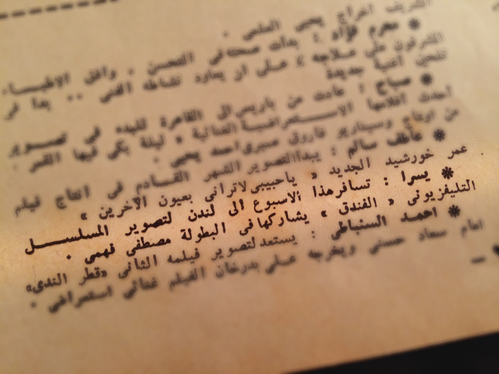 الشريف اخراج يحيى العلمى .
* محرم فؤاد : بدأت صحته فى التحسن . وافق الاطباء
المشرفون على علاجه ؛ على ان يعاود نشاطه الفنى .. بدأ فى
تلحين اغنية جديدة
* صباح : عادت من باريس الى القاهرة للبدء فى تصوير
احدث افلامها الاستعراضية الغنائية « ليلة بكى فيها القمر »
من انتاج وسيناريو فاروق صبرى احمد يحيى .
* عاطف سالم : يبدأ التصوير الشهر القادم فى انتاج فيلم
عمر خورشيد الجديد « ياحبيبى لاترانى بعيون الآخرين »
* يسرا : تسافر هذا الاسبوع الى لندن لتصوير المسلسل
التليفزيونى « الفندق » يشاركها فى البطولة مصطفى فهمى .
* احمد السنباطى : يستعد لتصوير فيلمه الثانى «قطر الندى»
امام سعاد حسنى ويخرجه على بدرخان الفيلم غنائى استعراضى .